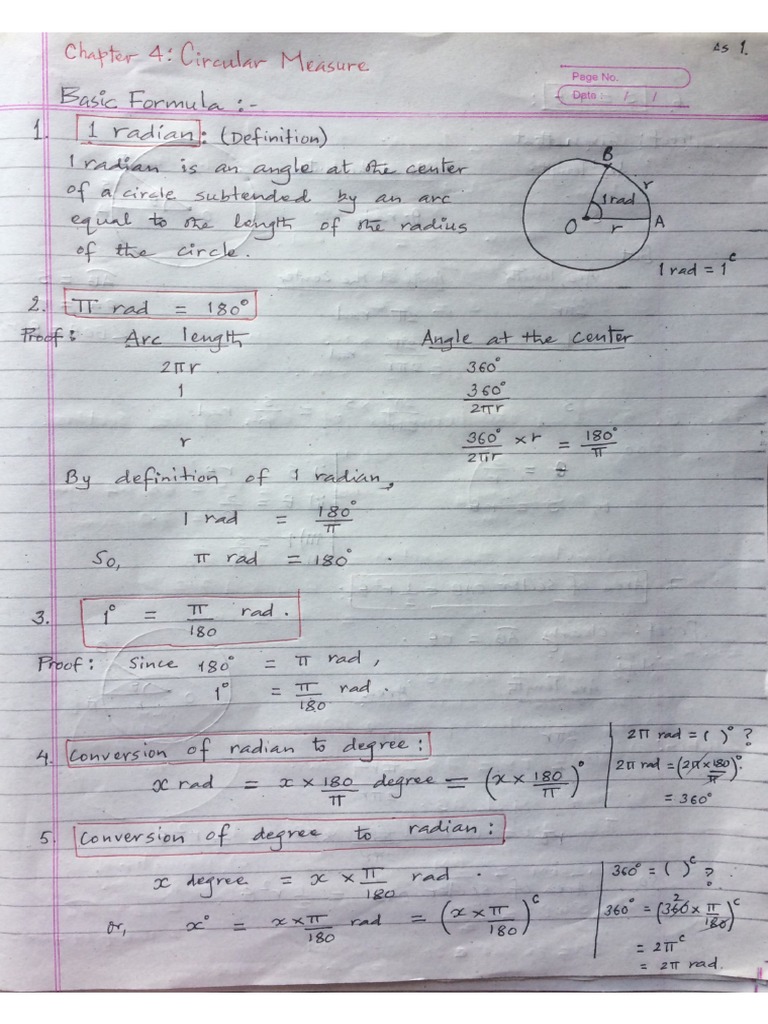 As 1.
Chapter 4: Circular Measure
Page No.
Date :- / /
Basic Formula :-
1. 1 radian : (Definition)
1 radian is an angle at the center
of a circle subtended by an arc
equal to the length of the radius
of the circle.
B
r
1 rad
O r A
1 rad = 1ᶜ
2. π rad = 180°
Proof : Arc length Angle at the center
2πr 360°
1 360°/2πr
r 360°/2πr × r = 180°/π
=
By definition of 1 radian,
1 rad = 180°/π
So, π rad = 180° .
3. 1° = π/180 rad .
Proof : Since 180° = π rad ,
1° = π/180 rad .
4. Conversion of radian to degree :
x rad = x × 180/π degree = (x × 180/π)°
2π rad = ( )° ?
2π rad = (2π × 180/π)°
= 360°
5. Conversion of degree to radian :
x degree = x × π/180 rad .
or, x° = x × π/180 rad = (x × π/180)ᶜ
360° = ( )ᶜ ?
360° = (360 2 × π/180)ᶜ
= 2πᶜ
= 2π rad.